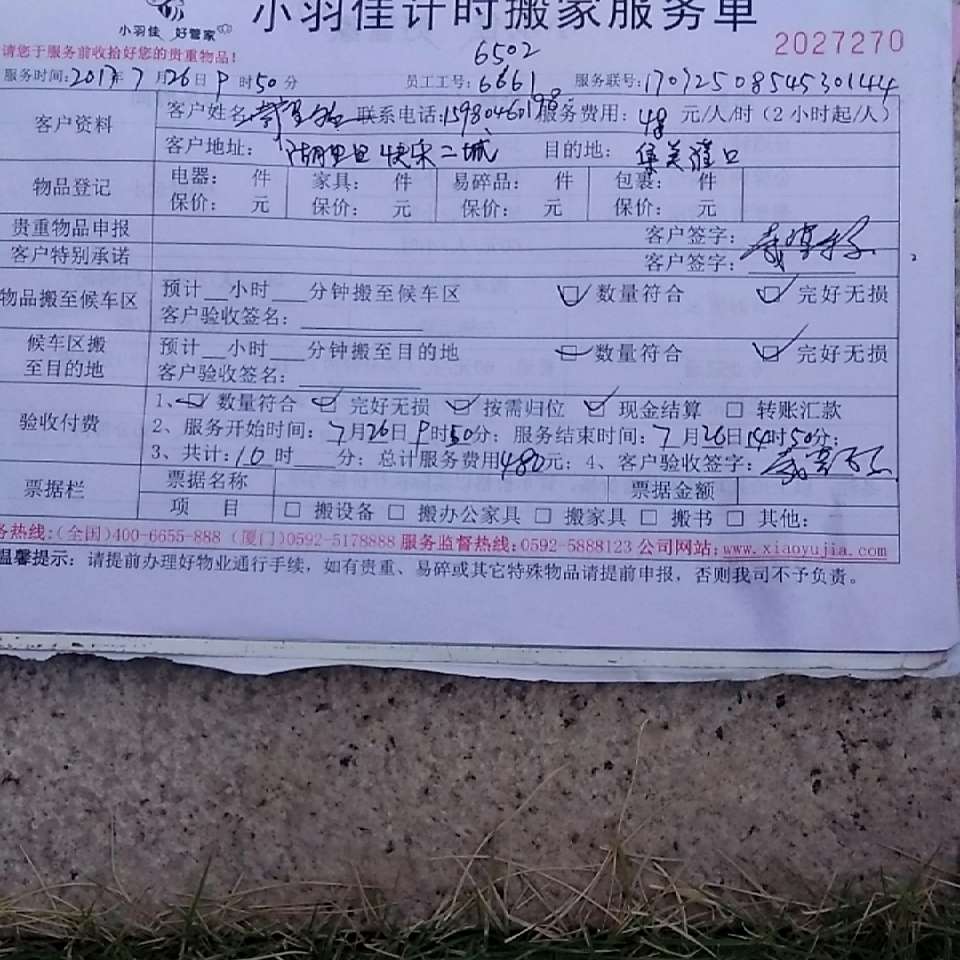 小羽佳计时搬家服务单
小羽佳 好管家
2027270
请您于服务前收拾好您的贵重物品!
6502
服务时间:2017年7月26日9时50分 员工工号:6661 服务联号:17072508545301444
客户资料
客户姓名: 联系电话:15980460198 服务费用:48元/人/时(2小时起/人)
客户地址: 湖里区 二城 目的地: 集美灌口
物品登记
电器: 件 家具: 件 易碎品: 件 包裹: 件
保价: 元 保价: 元 保价: 元 保价: 元
贵重物品申报 客户签字:
客户特别承诺 客户签字:
物品搬至候车区
预计__小时___分钟搬至候车区 数量符合 完好无损
客户验收签名:
候车区搬至目的地
预计__小时___分钟搬至目的地 数量符合 完好无损
客户验收签名:
验收付费
1、数量符合 完好无损 按需归位 现金结算 □ 转账汇款
2、服务开始时间:7月26日9时50分; 服务结束时间:7月26日14时50分;
3、共计:10时___分; 总计服务费用480元; 4、客户验收签字:
票据栏
票据名称 票据金额
项 目 □ 搬设备 □ 搬办公家具 □ 搬家具 □ 搬书 □ 其他:
务热线:(全国)400-6655-888 (厦门)0592-5178888 服务监督热线:0592-5888123 公司网站:www.xiaoyujia.com
温馨提示: 请提前办理好物业通行手续,如有贵重、易碎或其它特殊物品请提前申报,否则我司不予负责。